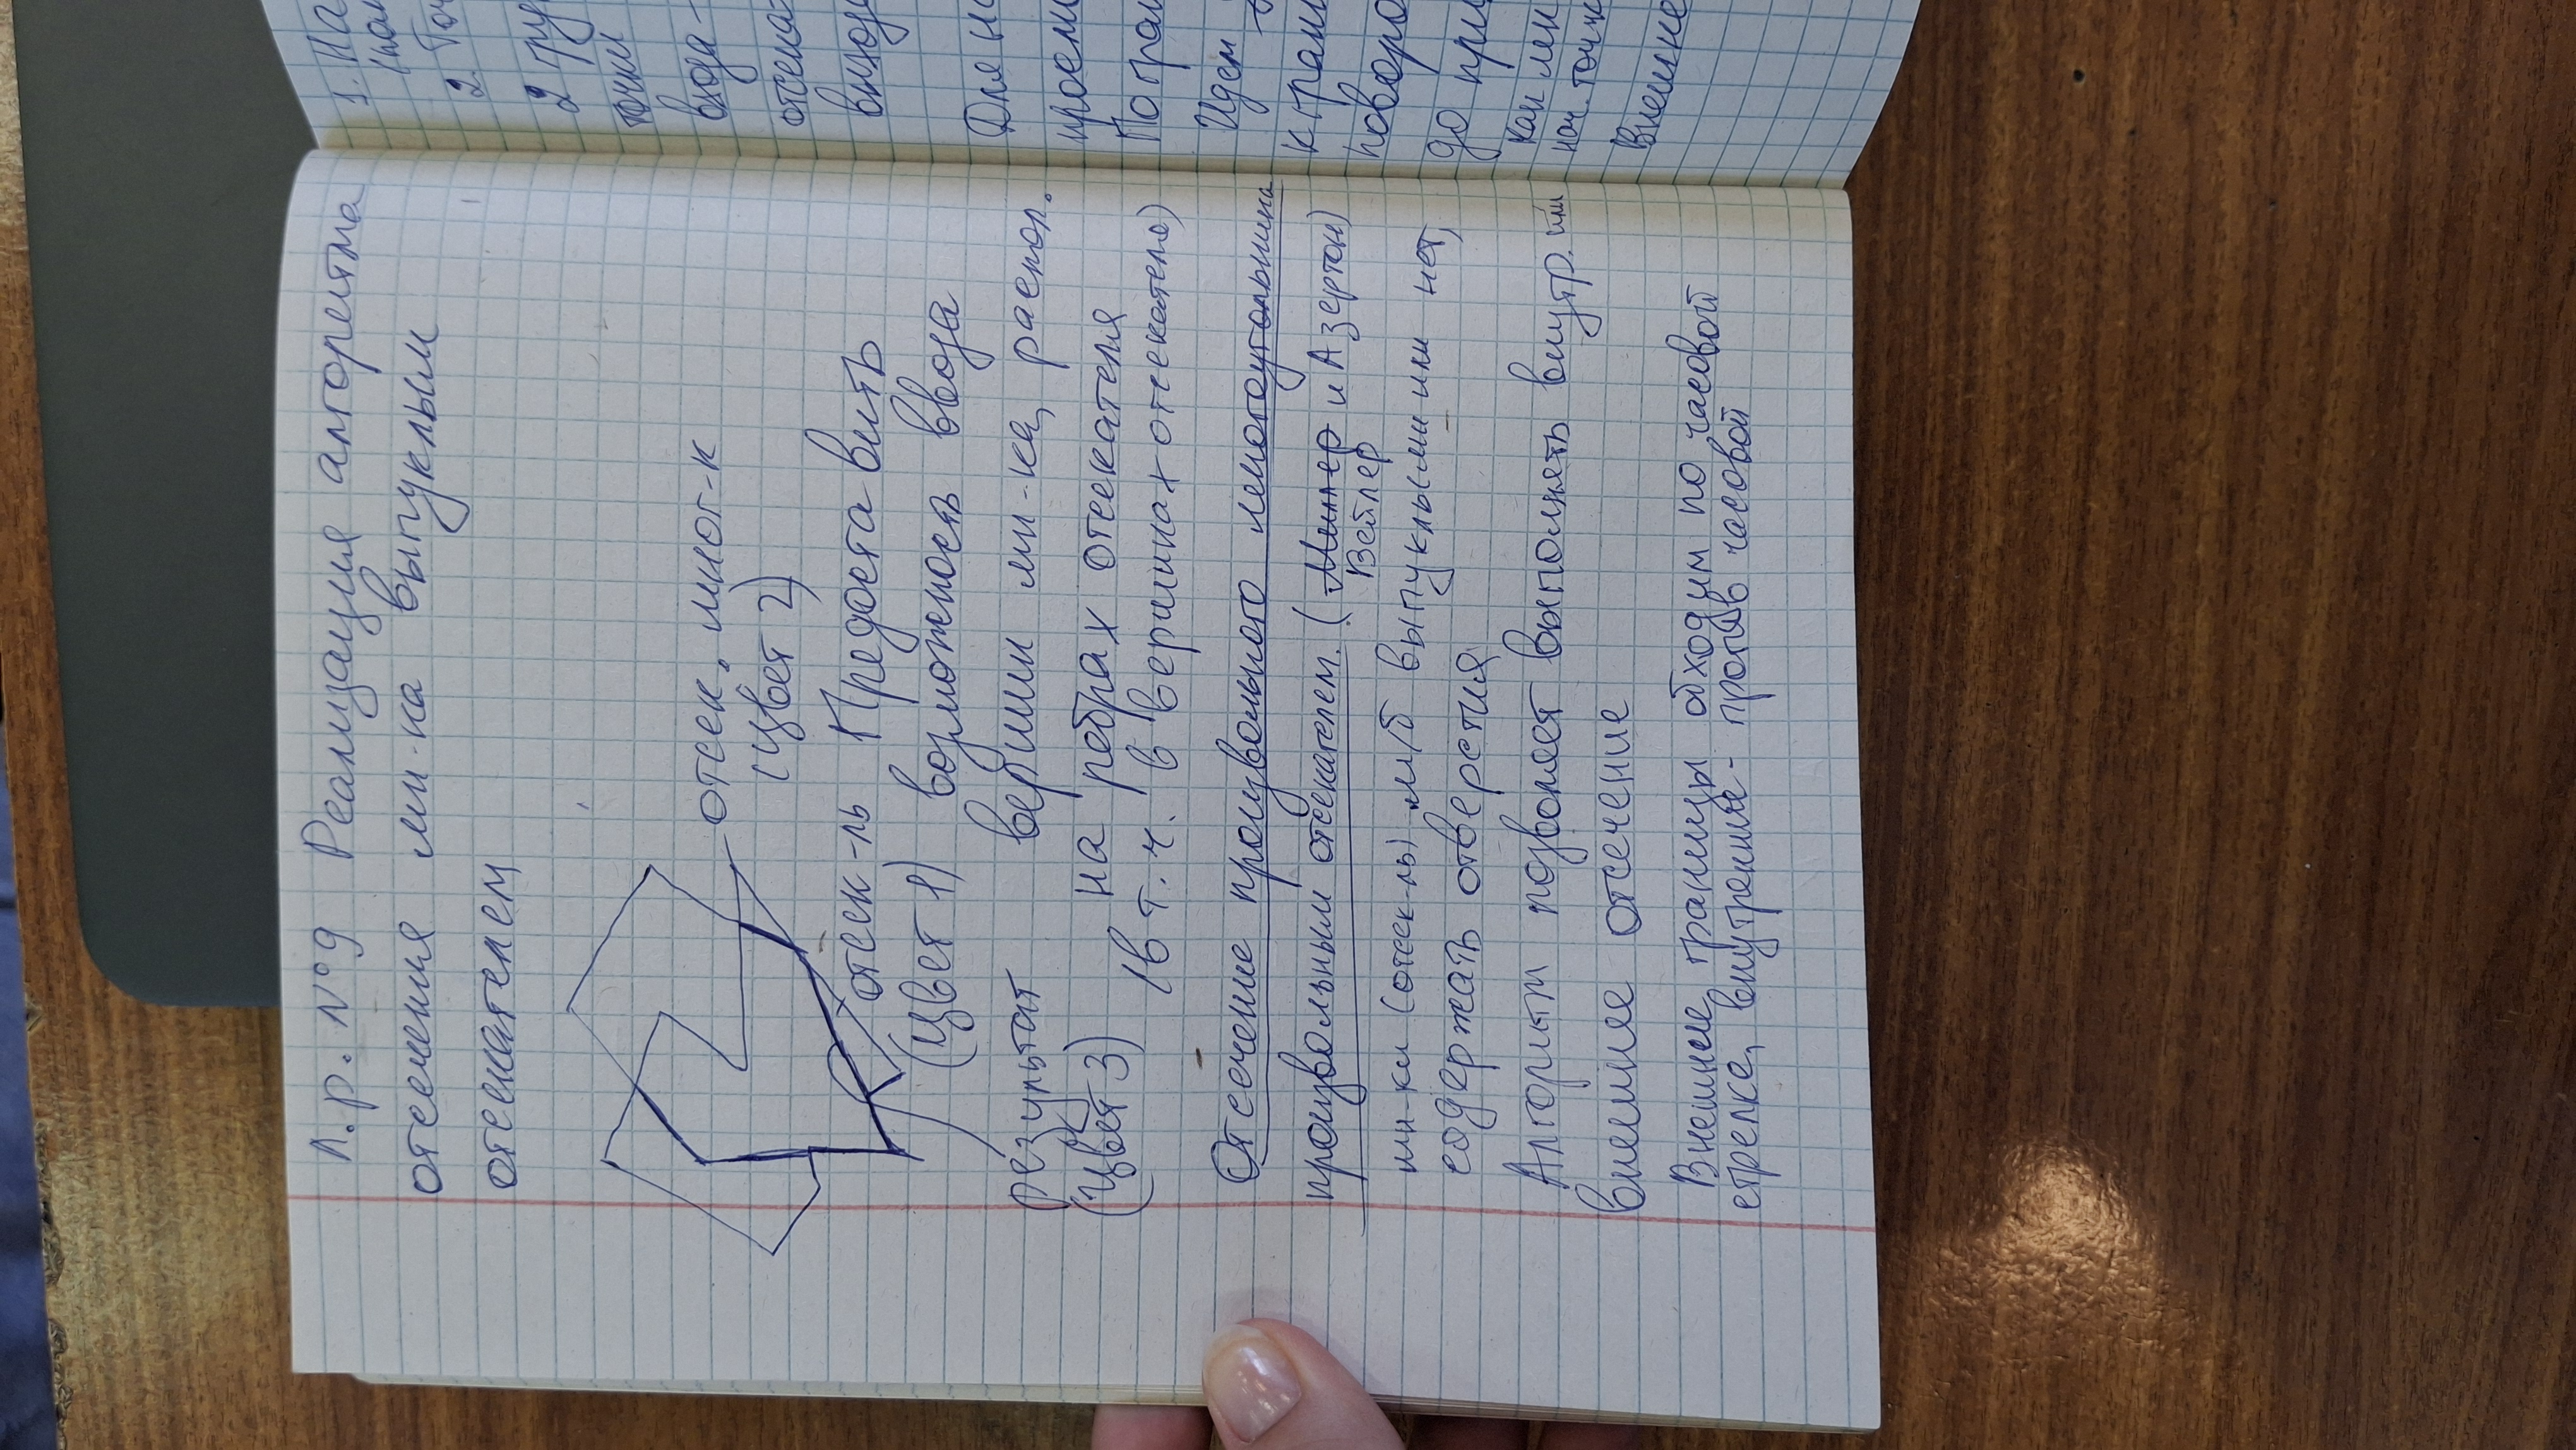 Л.р. №9 Реализация алгоритма
отсечения мн-ка выпуклым
отсекателем
отсек. мног-к
(Цвет 2)
отсек-ль Предоставить
(Цвет 1) возможность ввода
результат вершин мн-ка, распол.
(Цвет 3) на ребрах отсекателя
(в т.ч. в вершинах отсекателя)
Отсечение произвольного многоугольника
произвольным отсекателем. (Миллер и Азертон)
Вейлер
мн-ки (отсек-ль) м/б выпуклыми или нет,
содержать отверстия
Алгоритм позволяет выполнять внутр. или
внешнее отсечение
Внешние границы обходим по часовой
стрелке, внутренние - против часовой
1. На
2. Точ
2 гру
точки
входа -
отсека
выхода
Для на
просм
По гран
Идем
к грани
поворо
до при
как мн
нач. точк
Внешне